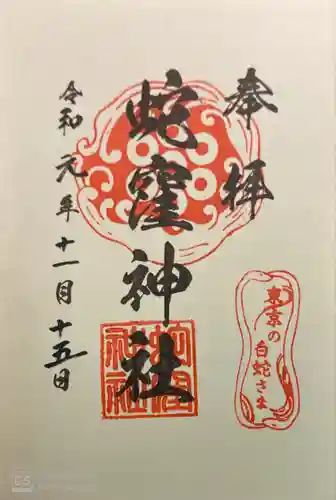 奉拝
蛇窪神社
令和元年十一月十五日
東京の
白蛇さま
蛇窪
神社
CS